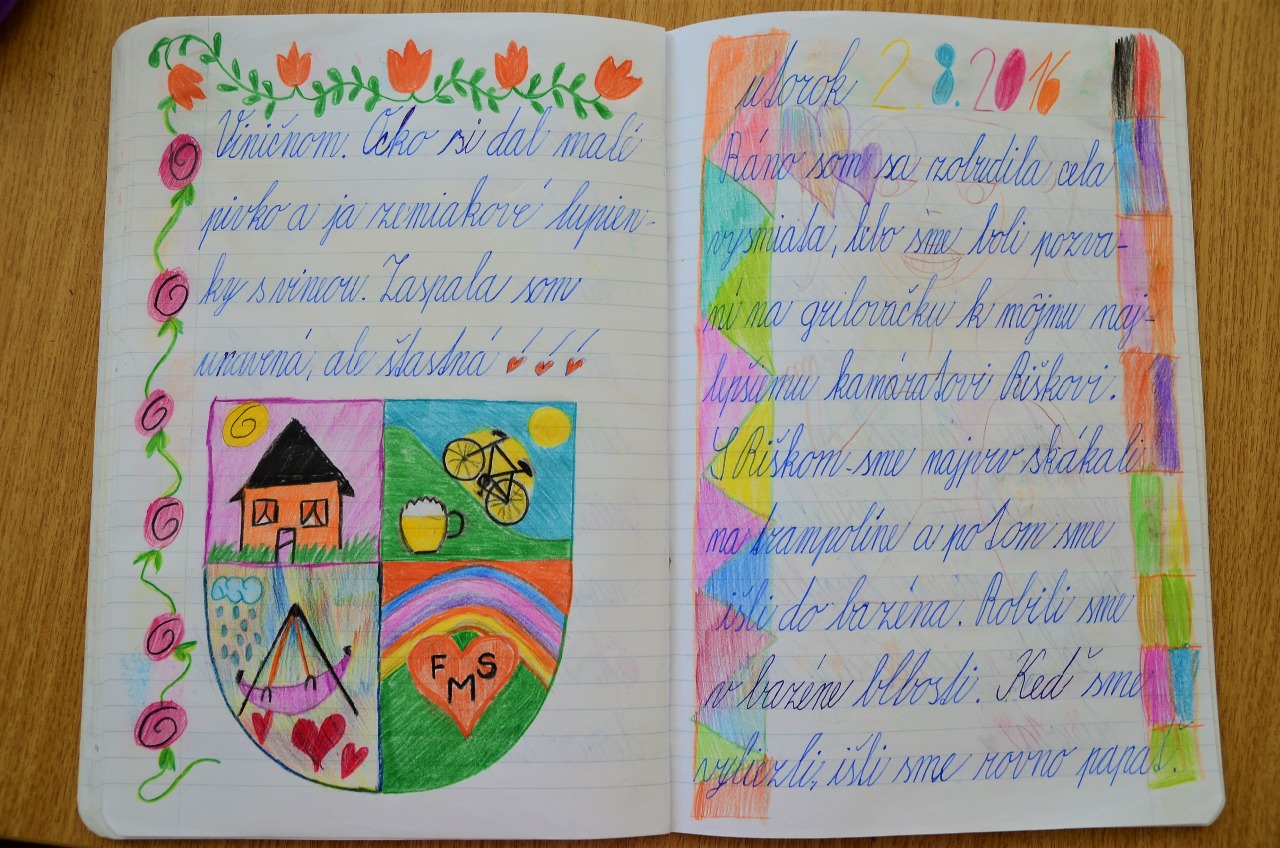 Viničnom. Ocko si dal malé
pivko a ja zemiakové lupien-
ky s vineou. Zaspala som
unavená, ale štastná !!!
F M S
utorok 2.8.2016
Ráno som sa zobudila cela
vysmiata, lebo sme boli pozva-
ní na grilovačku k môjmu naj-
lepšiemu kamaratovi Riškovi.
S Riškom sme najprv skákali
na trampolíne a potom sme
išli do bazéna. Robili sme
v bazéne blbosti. Keď sme
vyliezli, išli sme rovno papať.